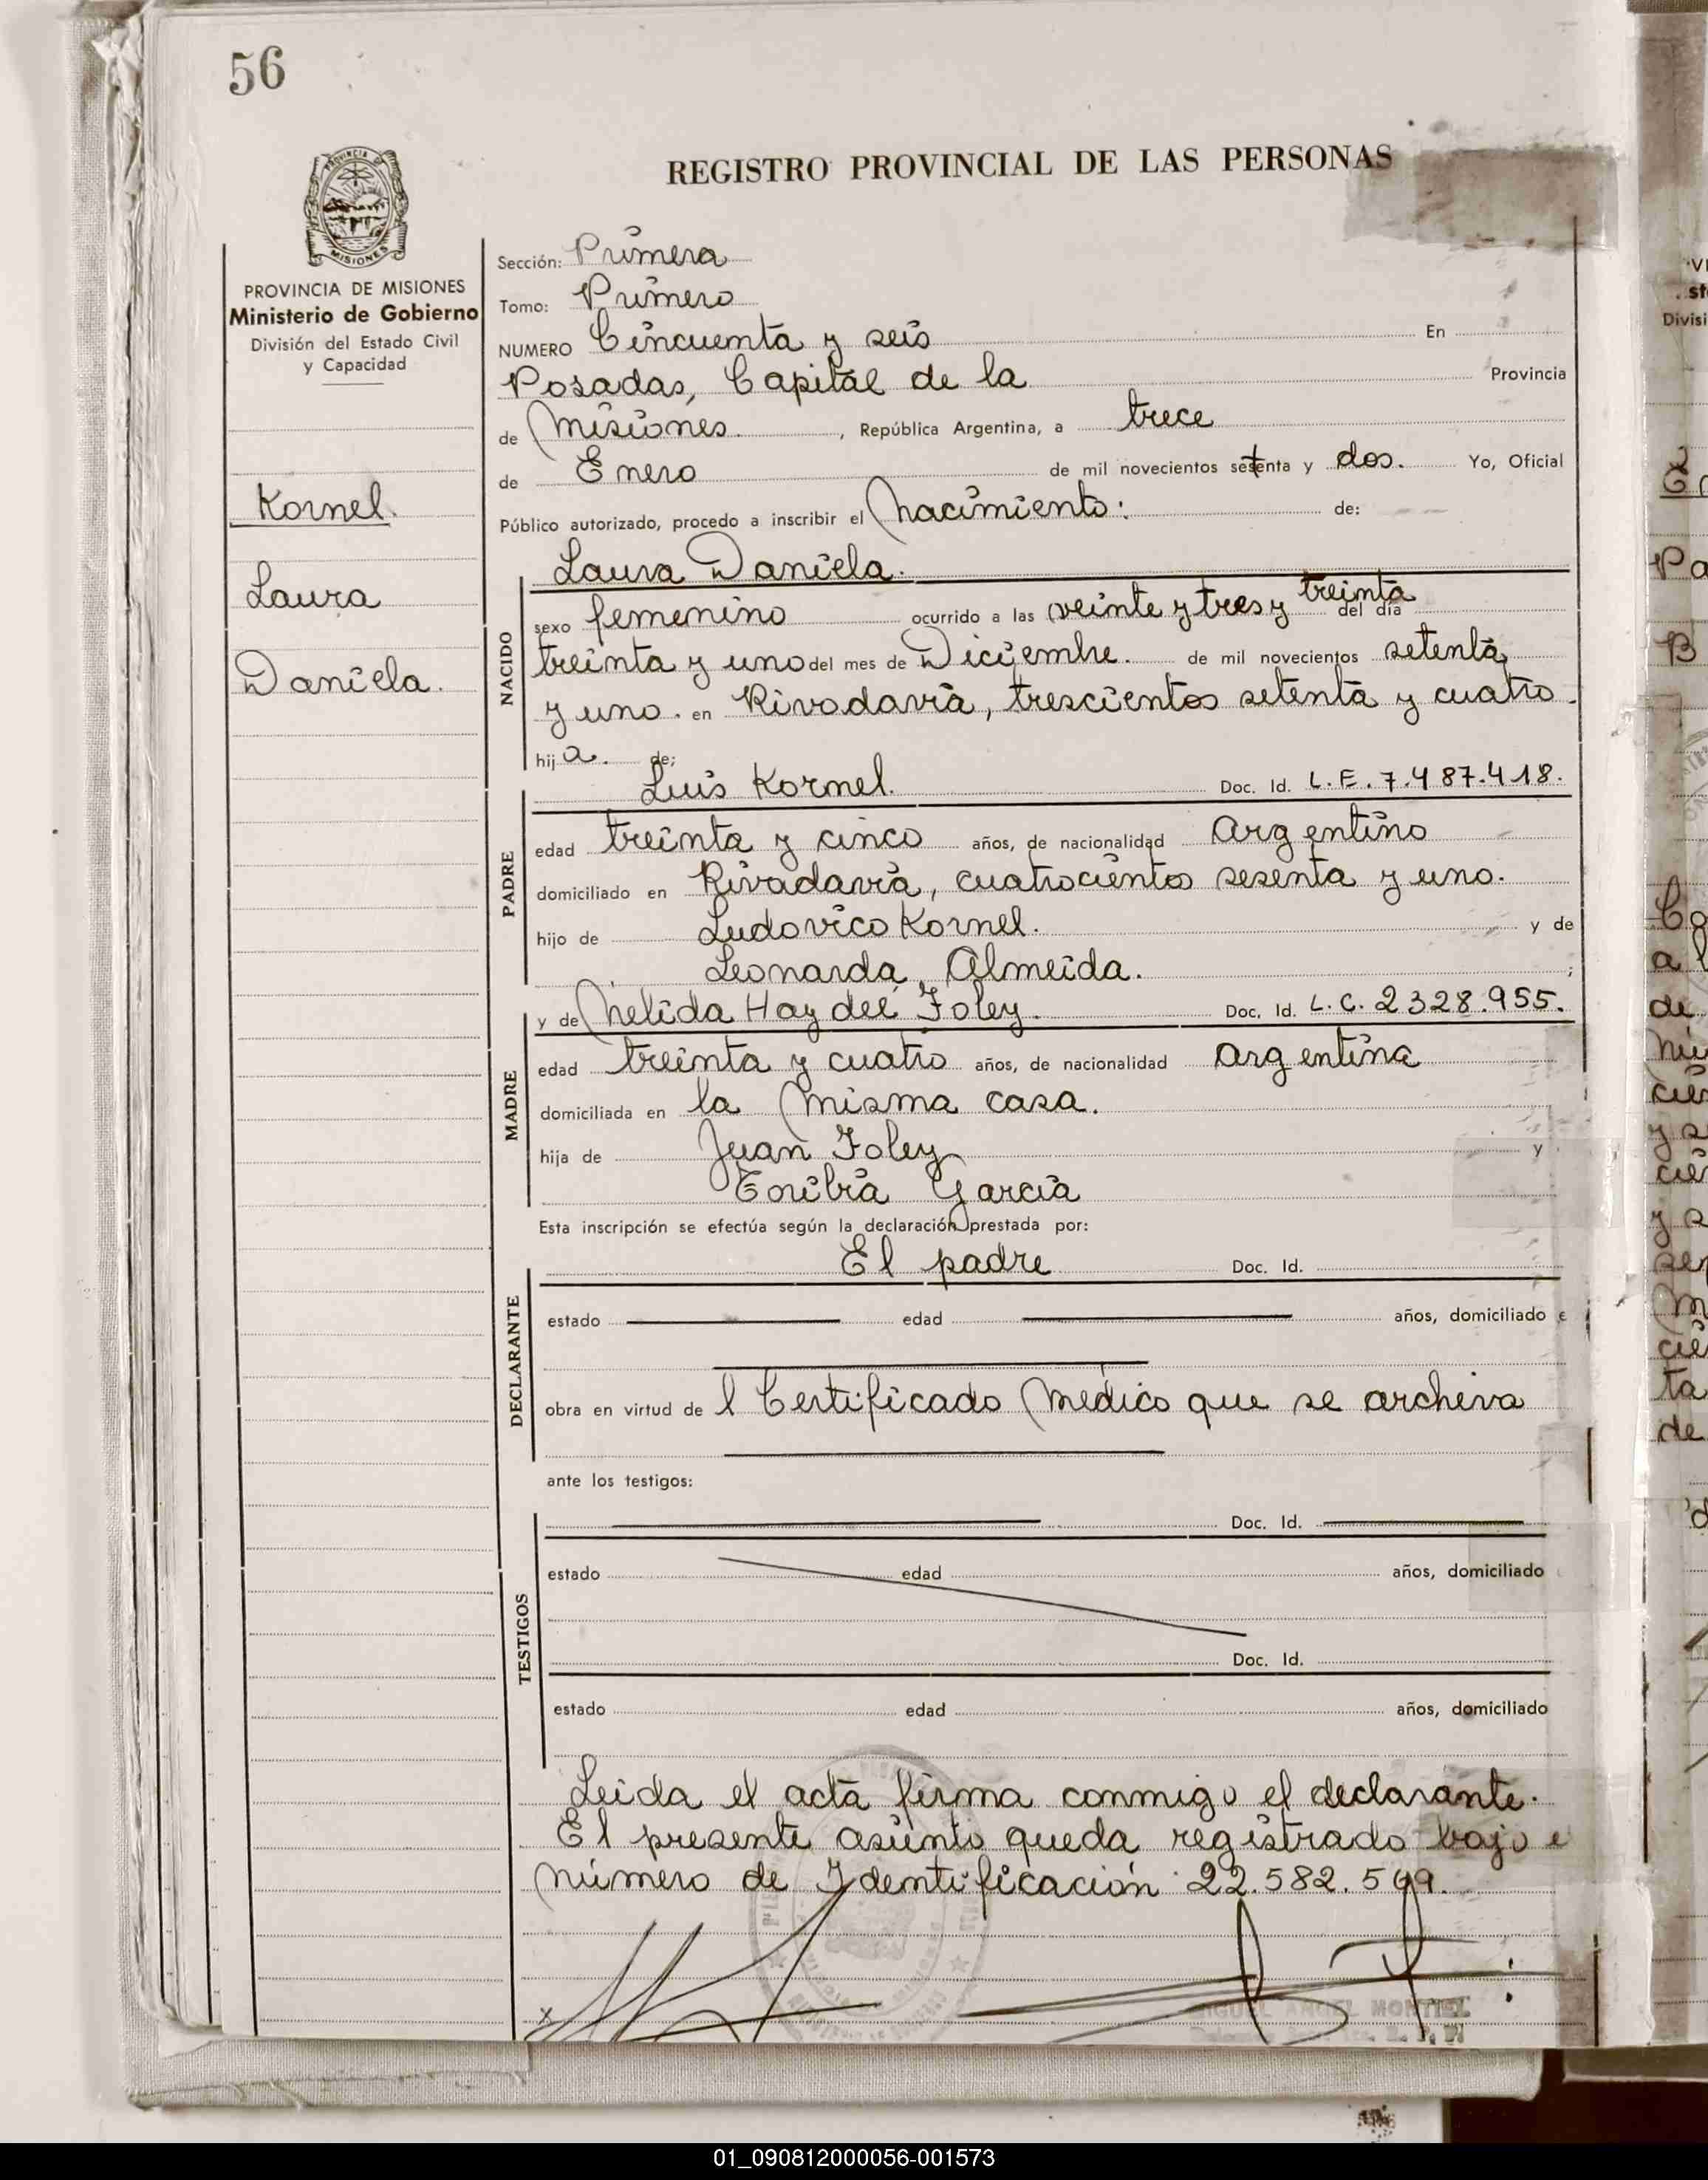 56
PROVINCIA DE
MISIONES
REGISTRO PROVINCIAL DE LAS PERSONAS
PROVINCIA DE MISIONES
Ministerio de Gobierno
División del Estado Civil
y Capacidad
Kornel
Laura
Daniela.
Sección: Primera
Tomo: Primero
NUMERO Cincuenta y seis En
Posadas, Capital de la Provincia
de Misiones , República Argentina, a trece
de Enero de mil novecientos setenta y dos. Yo, Oficial
Público autorizado, procedo a inscribir el Nacimiento: de:
Laura Daniela.
NACIDO
sexo femenino ocurrido a las veinte y tres y treinta del día
treinta y uno del mes de Diciembre. de mil novecientos setenta
y uno. en Rivadavia, trescientos setenta y cuatro.
hija. de;
Luis Kornel. Doc. Id. L.E. 7.487.418.
PADRE
edad treinta y cinco años, de nacionalidad Argentino
domiciliado en Rivadavia, cuatrocientos sesenta y uno.
hijo de Ludovico Kornel. y de
Leonarda Almeida. ;
y de Nelida Haydeé Foley. Doc. Id. L.C. 2328.955.
MADRE
edad treinta y cuatro años, de nacionalidad Argentina
domiciliada en la misma casa.
hija de Juan Foley y
García
Esta inscripción se efectúa según la declaración prestada por:
El padre Doc. Id.
DECLARANTE
estado edad años, domiciliado
obra en virtud de l Certificado Médico que se archiva
ante los testigos:
Doc. Id.
TESTIGOS
estado edad años, domiciliado
Doc. Id.
estado edad años, domiciliado
Leida el acta firma conmigo el declarante.
El presente asiento queda registrado bajo e
número de Identificación 22.582.599.
MIGUEL ANGEL MONTIEL
01_090812000056-001573